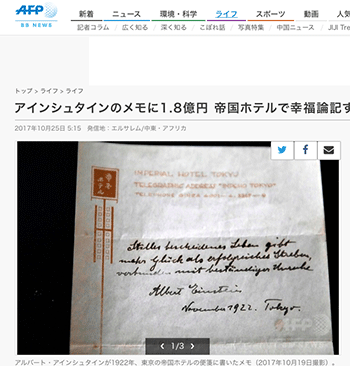 AFP
BB NEWS
新着
ニュース
環境・科学
ライフ
スポーツ
動画
人気
記者コラム
広く知る
深く知る
こぼれ話
写真特集
中国ニュース
JIJI Tre
トップ > ライフ > ライフ
アインシュタインのメモに1.8億円 帝国ホテルで幸福論記す
2017年10月25日 5:15 発信地：エルサレム/中東・アフリカ
IMPERIAL HOTEL TOKYO
TELEGRAPHIC ADDRESS
ホテル
Stilles bescheidenes Leben gibt
mehr Glück als erfolgreiches Streben,
verbunden mit beständiger Unruhe.
Albert Einstein
November 1922. Tokyo.
AFP
1/3
アルバート・アインシュタインが1922年、東京の帝国ホテルの便箋に書いたメモ（2017年10月19日撮影）。